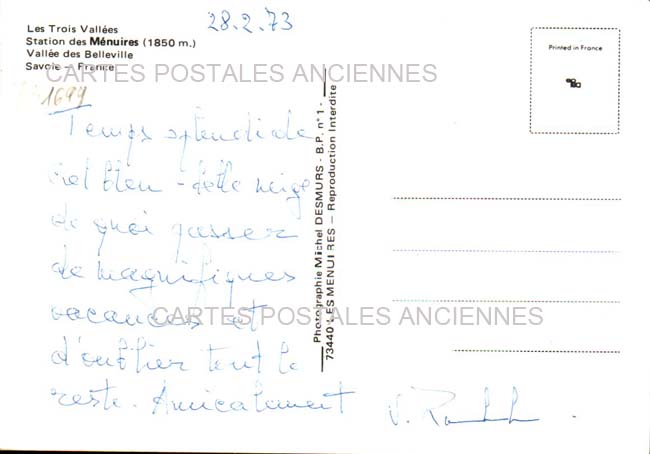 28.2.73
Les Trois Vallées
Station des Ménuires (1850 m.)
Vallée des Belleville
Savoie - France
CARTES POSTALES ANCIENNES
1699
Temps splendide
ciel bleu - belle neige
de quoi passer
de magnifiques
vacances et
d'oublier tout le
reste. Amicalement
V.
CARTES POSTALES ANCIENNES
Photographie Michel DESMURS - B.P. n° 1 -
73440 - LES MENUIRES - Reproduction Interdite
Printed in France